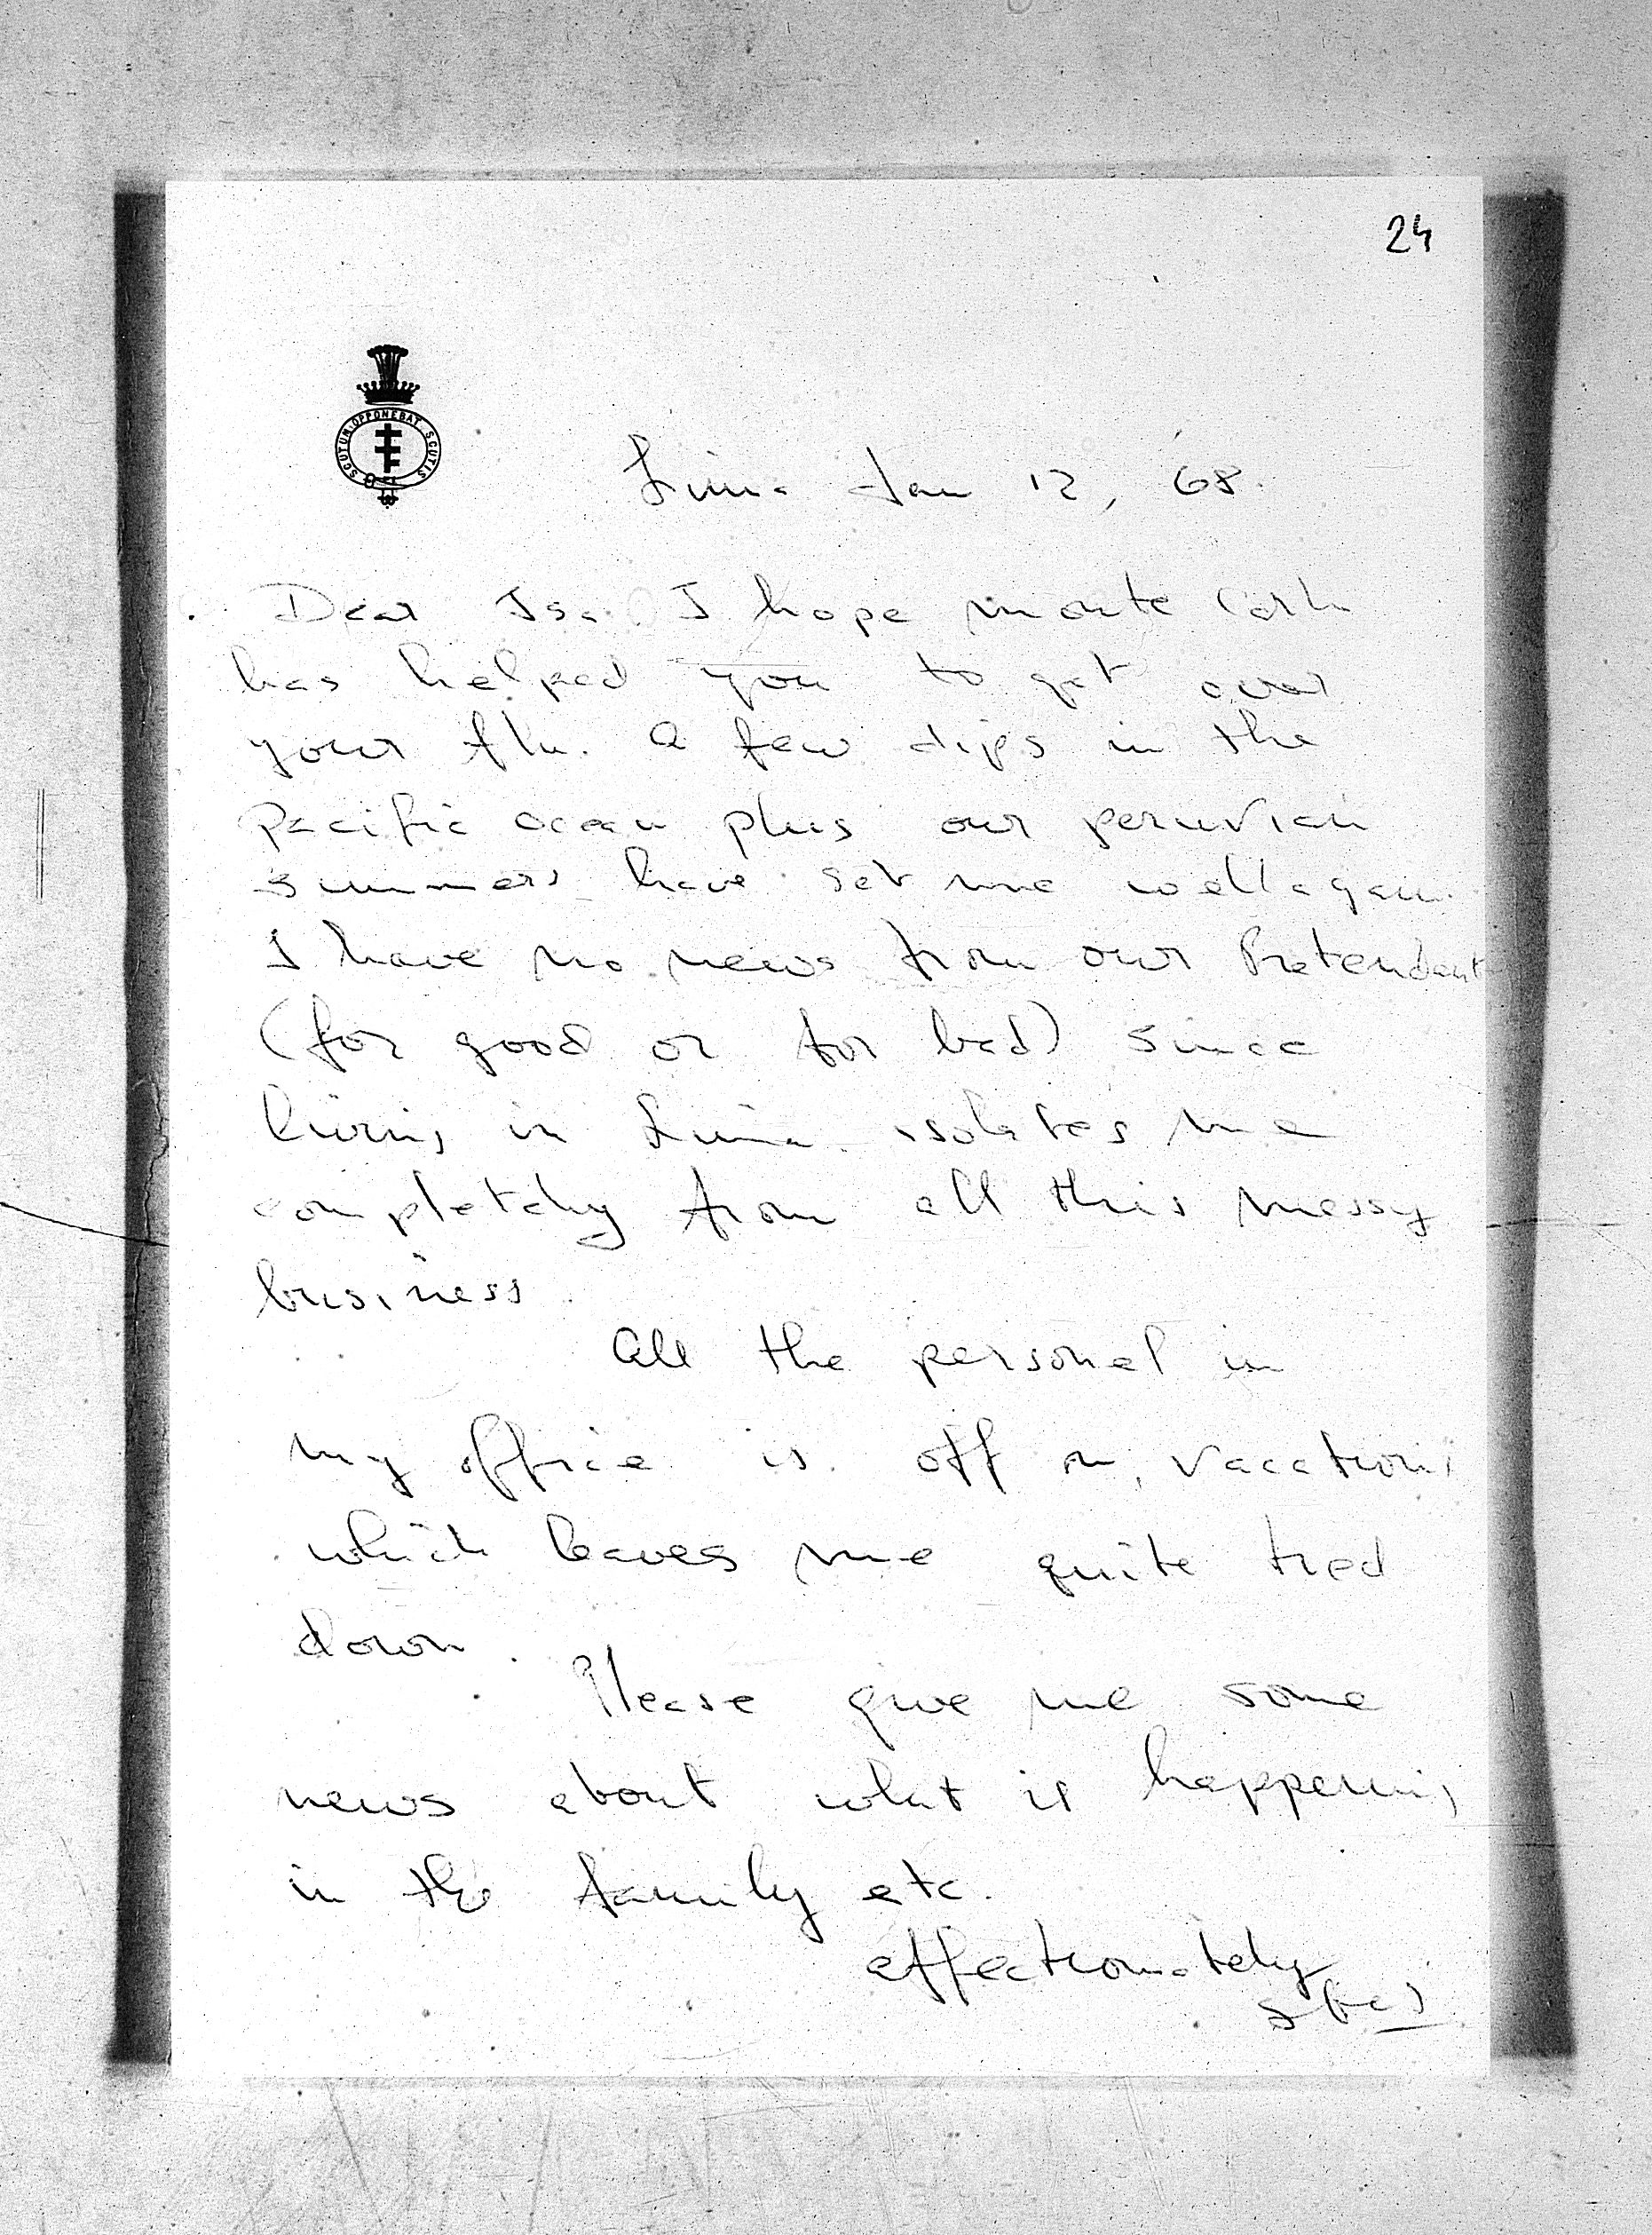 24
SCUTUM·OPPONEBAT SCUTIS
Lima Jan 12, 68.
Dear Isa. I hope monte Carlo
has helped you to get over
your flu. A few dips in the
Pacific Ocean plus our peruvian
summers have set me well again.
I have no news from our Pretendant
(for good or for bad) since
living in Lima isolates me
completely from all this messy
business.
All the personel in
my office is off on vacations
which leaves me quite tied
down.
Please give me some
news about what is happening
in the family etc.
affectionately